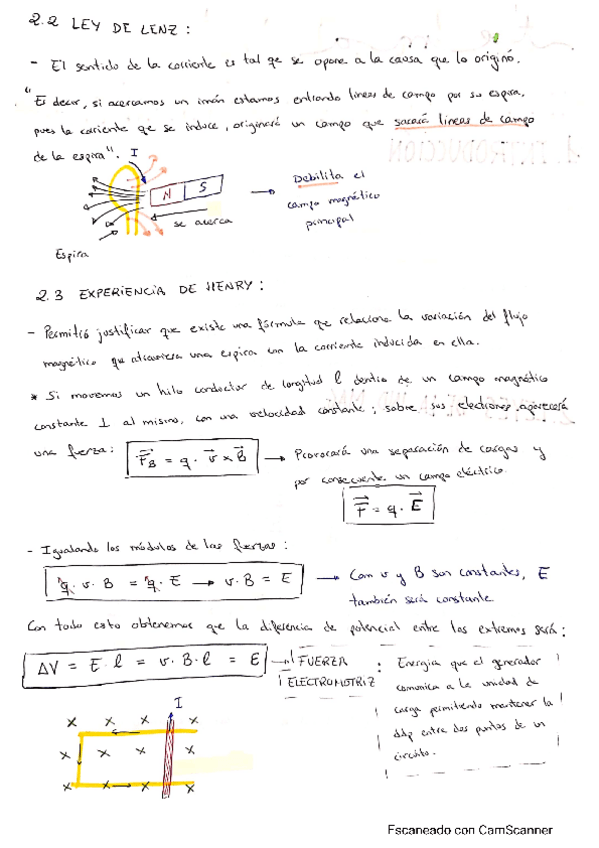 2.2 LEY DE LENZ :
- El sentido de la corriente es tal que se opone a la causa que lo originó.
"Es decir, si acercamos un imán estamos entrando lineas de campo por su espira,
pues la corriente que se induce, originará un campo que sacará lineas de campo
de la espira".
I
N S
se acerca
Espira
→ Debilita el
campo magnético
principal
2.3 EXPERIENCIA DE HENRY :
- Permitió justificar que existe una fórmula que relaciona la variación del flujo
magnético que atraviesa una espira con la corriente inducida en ella.
* Si movemos un hilo conductor de longitud l dentro de un campo magnético
constante ⊥ al mismo, con una velocidad constante; sobre sus electrones aparecerá
una fuerza: F⃗B = q · v⃗ x B⃗ → Provocará una separación de cargas y
por consecuente un campo eléctrico.
F⃗ = q · E⃗
- Igualando los módulos de las fuerzas :
q · v · B = q · E → v · B = E → Como v y B son constantes, E
también será constante
Con todo esto obtenemos que la diferencia de potencial entre los extremos será :
ΔV = E · l = v · B · l = E → FUERZA
ELECTROMOTRIZ
: Energía que el generador
comunica a la unidad de
carga permitiendo mantener la
ddp entre dos puntos de un
circuito.
I
x x x x
x x x x
x x x x
Escaneado con CamScanner